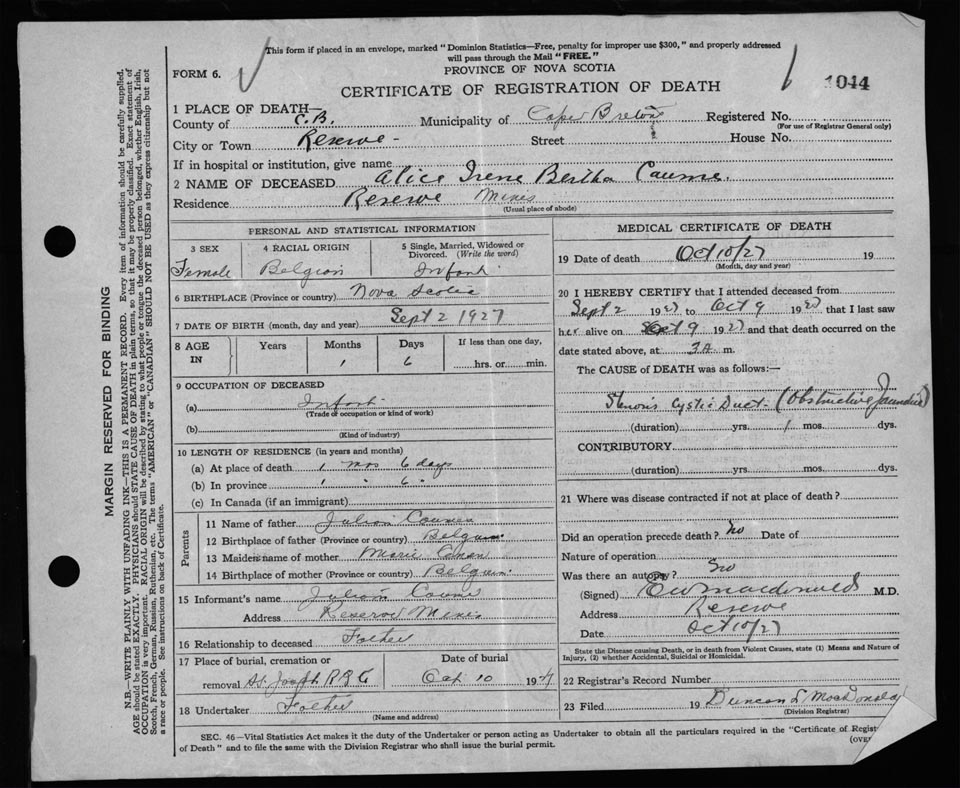 This form if placed in an envelope, marked "Dominion Statistics—Free, penalty for improper use $300," and properly addressed
will pass through the Mail "FREE."
FORM 6.
PROVINCE OF NOVA SCOTIA
1044
CERTIFICATE OF REGISTRATION OF DEATH
1 PLACE OF DEATH—
County of C.B. Municipality of Cape Breton Registered No.
(For use of Registrar General only)
City or Town Reserve - Street House No.
If in hospital or institution, give name
2 NAME OF DECEASED Alice Irene Bertha Caume.
Residence Reserve Mines
(Usual place of abode)
PERSONAL AND STATISTICAL INFORMATION
3 SEX 4 RACIAL ORIGIN 5 Single, Married, Widowed or
Divorced. (Write the word)
Female Belgian Infant
6 BIRTHPLACE (Province or country) Nova Scotia
7 DATE OF BIRTH (month, day and year) Sept 2 1927
8 AGE IN Years Months Days If less than one day,
1 6 hrs. or min.
9 OCCUPATION OF DECEASED
(a) Infant
(Trade or occupation or kind of work)
(b)
(Kind of industry)
10 LENGTH OF RESIDENCE (in years and months)
(a) At place of death 1 mos 6 days
(b) In province 1 " 6 "
(c) In Canada (if an immigrant)
Parents
11 Name of father Julian
12 Birthplace of father (Province or country) Belgium
13 Maiden name of mother Marie
14 Birthplace of mother (Province or country) Belgium.
15 Informant's name Julian
Address Reserve Mines
16 Relationship to deceased Father
17 Place of burial, cremation or Date of burial
removal St. Joseph R.C. Oct 10 1927
18 Undertaker Father
(Name and address)
MEDICAL CERTIFICATE OF DEATH
19 Date of death Oct 10/27 19
(Month, day and year)
20 I HEREBY CERTIFY that I attended deceased from
Sept 2 1927 to Oct 9 1927 that I last saw
her alive on Oct 9 1927 and that death occurred on the
date stated above, at 3 A m.
The CAUSE of DEATH was as follows:—
Stenosis Cystic Duct. (Obstructive Jaundice)
(duration) yrs. 1 mos. dys.
CONTRIBUTORY
(duration) yrs. mos. dys.
21 Where was disease contracted if not at place of death?
Did an operation precede death? no Date of
Nature of operation
Was there an autopsy? No
(Signed) E W Macdonald M.D.
Address Reserve
Date Oct 10/27
State the Disease causing Death, or in death from Violent Causes, state (1) Means and Nature of
Injury, (2) whether Accidental, Suicidal or Homicidal.
22 Registrar's Record Number
23 Filed 19 Duncan L MacDonald
(Division Registrar)
SEC. 46—Vital Statistics Act makes it the duty of the Undertaker or person acting as Undertaker to obtain all the particulars required in the "Certificate of Regist
of Death" and to file the same with the Division Registrar who shall issue the burial permit.
(OVE
MARGIN RESERVED FOR BINDING
N.B.—WRITE PLAINLY WITH UNFADING INK—THIS IS A PERMANENT RECORD. Every item of information should be carefully supplied.
AGE should be stated EXACTLY. PHYSICIANS should STATE CAUSE OF DEATH in plain terms, so that it may be properly classified. Exact statement of
OCCUPATION is very important. RACIAL ORIGIN will be described by stating to what people or tongue the deceased person belonged, whether English, Irish,
Scotch, French, German, Russian, Ruthenian, etc. The terms "AMERICAN" or "CANADIAN" SHOULD NOT BE USED as they express citizenship but not
a race or people. See instructions on back of Certificate.